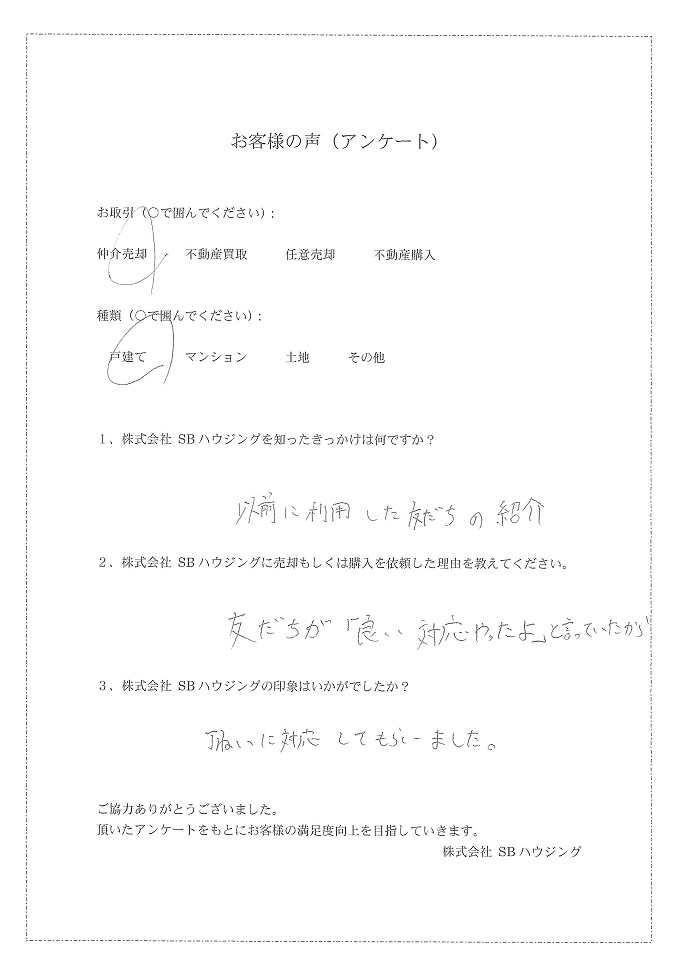 お客様の声（アンケート）
お取引（○で囲んでください）：
仲介売却　不動産買取　任意売却　不動産購入
種類（○で囲んでください）：
戸建て　マンション　土地　その他
１、株式会社 SBハウジングを知ったきっかけは何ですか？
以前に利用した友だちの紹介
２、株式会社 SBハウジングに売却もしくは購入を依頼した理由を教えてください。
友だちが「良い対応やったよ」と言っていたから
３、株式会社 SBハウジングの印象はいかがでしたか？
に対応してもらいました。
ご協力ありがとうございました。
頂いたアンケートをもとにお客様の満足度向上を目指していきます。
株式会社 SBハウジング